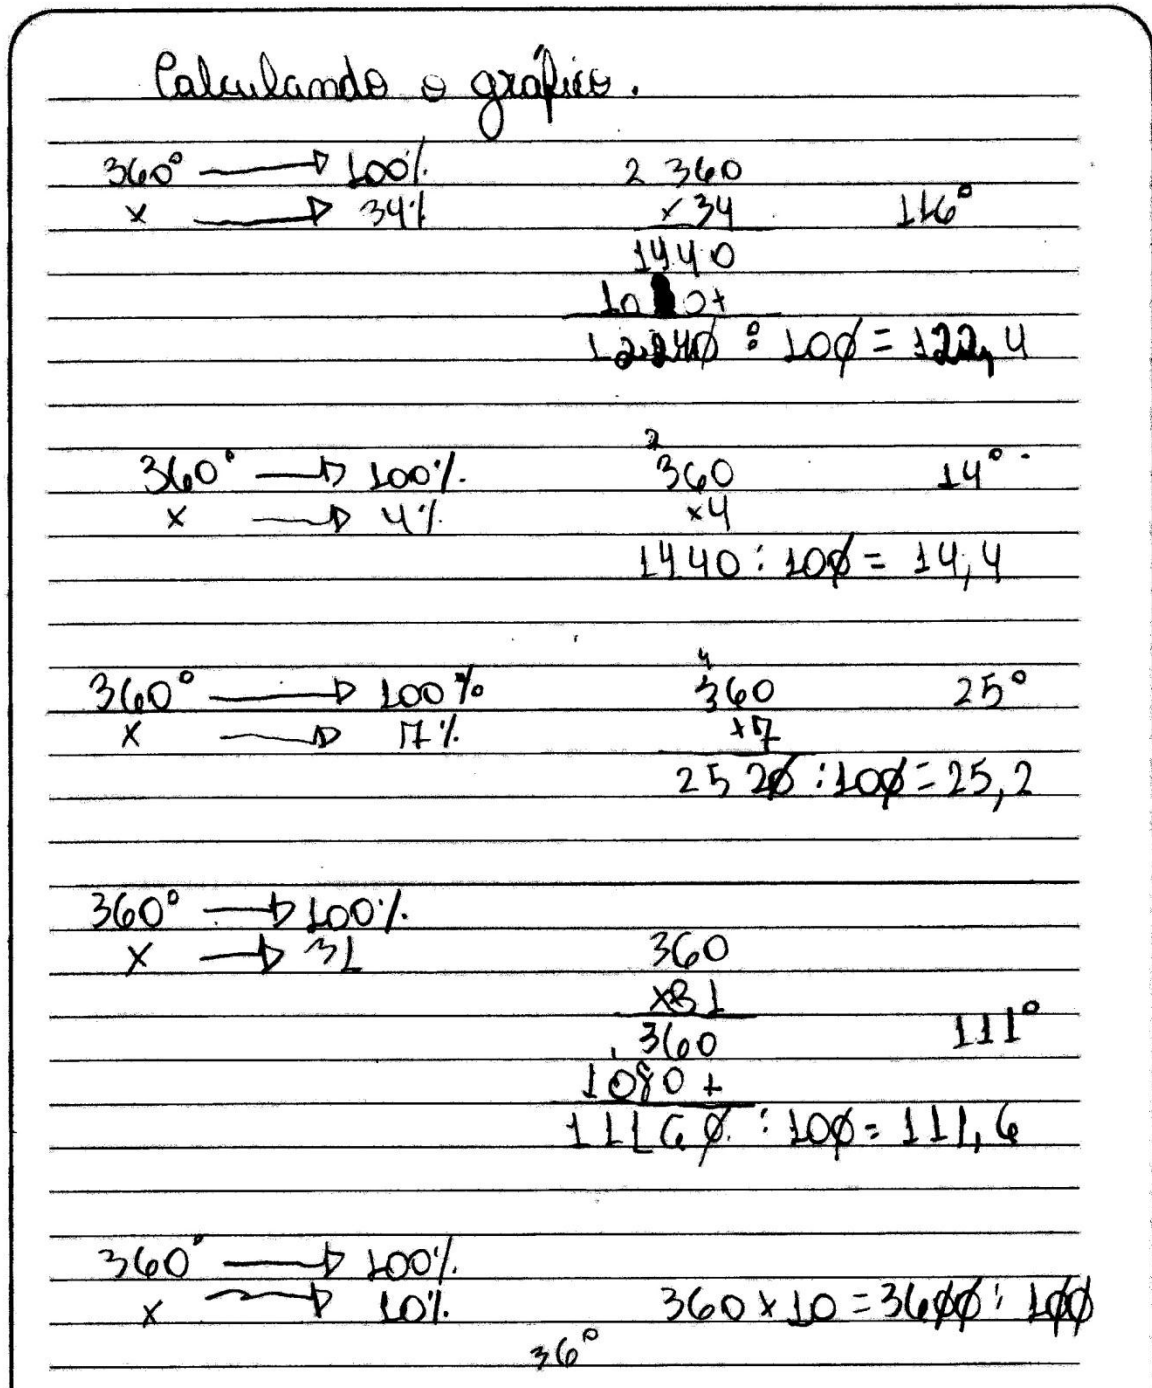 Calculando o gráfico.
360° → 100%
x → 34%
2 360
x 34
1440
10 0+
12.240 : 100 = 122,4
116°
360° → 100%
x → 4%
2
360
x4
1440 : 100 = 14,4
14°
360° → 100%
x → 7%
4
360
x7
2520 : 100 = 25,2
25°
360° → 100%
x → 31
360
x31
360
1080+
11160 : 100 = 111,6
111°
360° → 100%
x → 10%
360 x 10 = 3600 : 100
36°